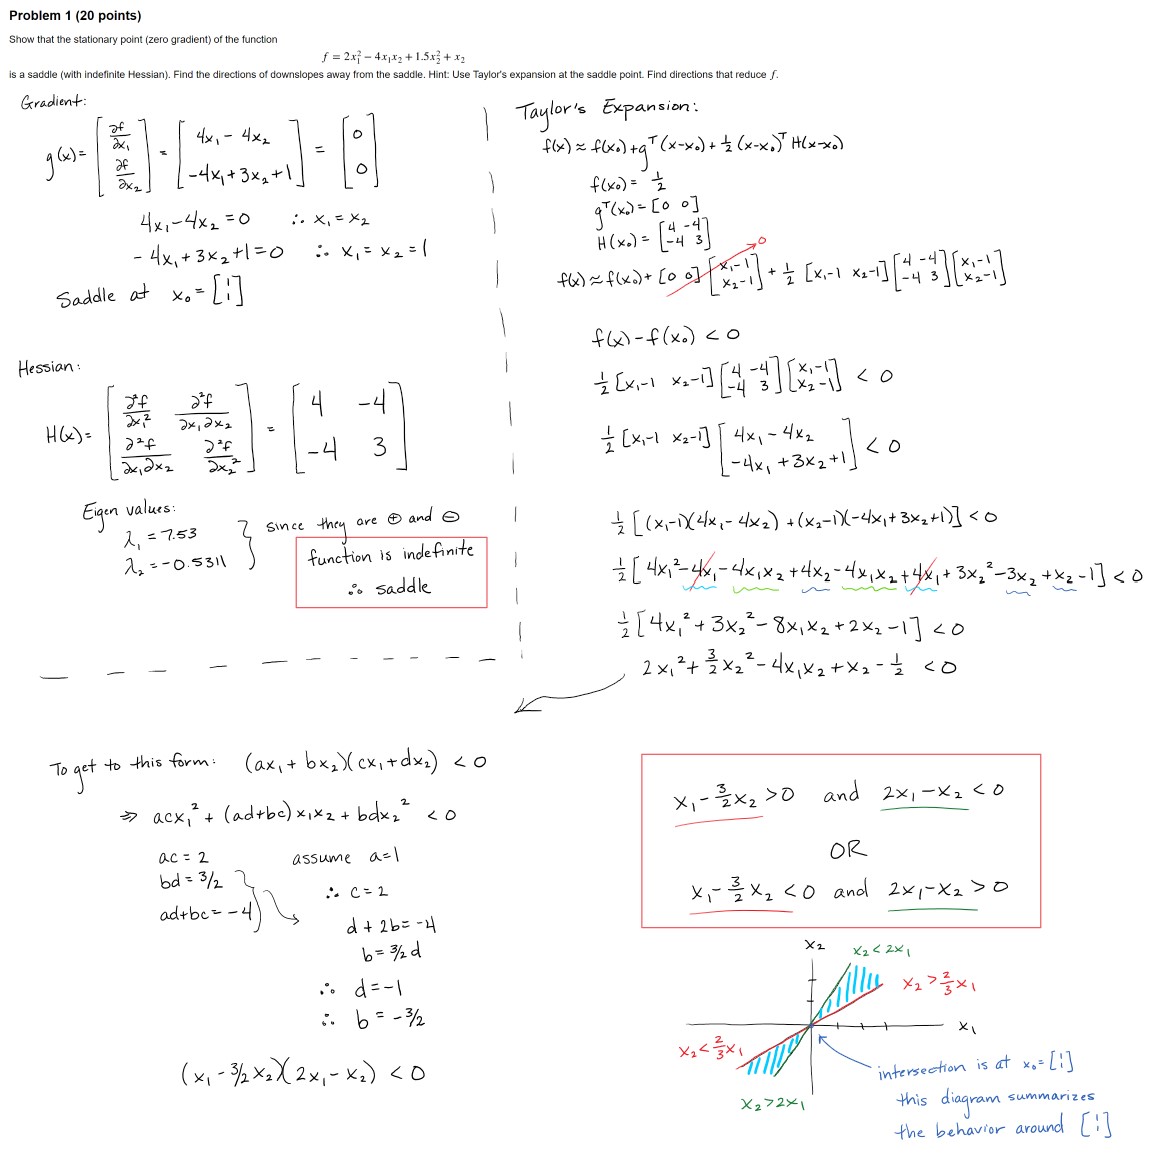 Problem 1 (20 points)
Show that the stationary point (zero gradient) of the function
f = 2x₁² − 4x₁x₂ + 1.5x₂² + x₂
is a saddle (with indefinite Hessian). Find the directions of downslopes away from the saddle. Hint: Use Taylor's expansion at the saddle point. Find directions that reduce f.
Gradient:
g(x) = [∂f/∂x₁ ; ∂f/∂x₂] = [4x₁ − 4x₂ ; −4x₁ + 3x₂ + 1] = [0 ; 0]
4x₁ − 4x₂ = 0 ∴ x₁ = x₂
−4x₁ + 3x₂ + 1 = 0 ∴ x₁ = x₂ = 1
Saddle at x₀ = [1 ; 1]
Hessian:
H(x) = [∂²f/∂x₁² ∂²f/∂x₁∂x₂ ; ∂²f/∂x₁∂x₂ ∂²f/∂x₂²] = [4 −4 ; −4 3]
Eigen values:
λ₁ = 7.53
λ₂ = −0.5311
since they are ⊕ and ⊖
function is indefinite
∴ saddle
Taylor's Expansion:
f(x) ≈ f(x₀) + gᵀ(x−x₀) + ½ (x−x₀)ᵀ H(x−x₀)
f(x₀) = ½
gᵀ(x₀) = [0 0]
H(x₀) = [4 −4 ; −4 3]
f(x) ≈ f(x₀) + [0 0] [x₁−1 ; x₂−1] + ½ [x₁−1 x₂−1] [4 −4 ; −4 3] [x₁−1 ; x₂−1]
0
f(x) − f(x₀) < 0
½ [x₁−1 x₂−1] [4 −4 ; −4 3] [x₁−1 ; x₂−1] < 0
½ [x₁−1 x₂−1] [4x₁ − 4x₂ ; −4x₁ + 3x₂ + 1] < 0
½ [(x₁−1)(4x₁ − 4x₂) + (x₂−1)(−4x₁ + 3x₂ + 1)] < 0
½ [4x₁² − 4x₁ − 4x₁x₂ + 4x₂ − 4x₁x₂ + 4x₁ + 3x₂² − 3x₂ + x₂ − 1] < 0
½ [4x₁² + 3x₂² − 8x₁x₂ + 2x₂ − 1] < 0
2x₁² + 3/2 x₂² − 4x₁x₂ + x₂ − ½ < 0
To get to this form: (ax₁ + bx₂)(cx₁ + dx₂) < 0
⇒ acx₁² + (ad+bc)x₁x₂ + bdx₂² < 0
ac = 2
bd = 3/2
ad+bc = −4
assume a=1
∴ c = 2
d + 2b = −4
b = 3/2 d
∴ d = −1
∴ b = −3/2
(x₁ − 3/2 x₂)(2x₁ − x₂) < 0
x₁ − 3/2 x₂ > 0 and 2x₁ − x₂ < 0
OR
x₁ − 3/2 x₂ < 0 and 2x₁ − x₂ > 0
x₂
x₂ < 2x₁
x₂ > 2/3 x₁
x₁
x₂ < 2/3 x₁
x₂ > 2x₁
intersection is at x₀ = [1 ; 1]
this diagram summarizes
the behavior around [1 ; 1]